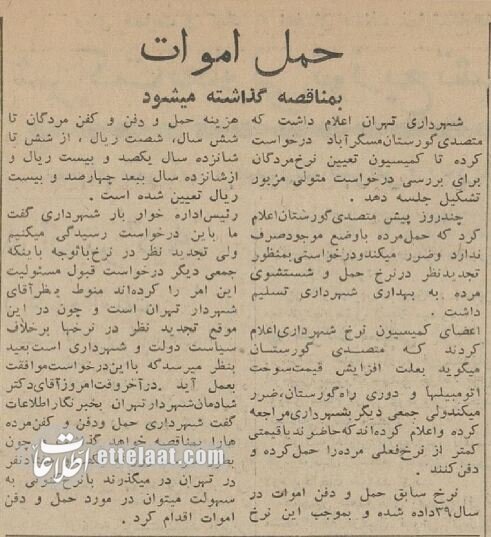 حمل اموات
بمناقصه گذاشته میشود
شهرداری تهران اعلام داشت که
متصدی گورستان مسگرآباد درخواست
کرده تا کمیسیون تعیین نرخ مردگان
برای بررسی درخواست متولی مزبور
تشکیل جلسه دهد.
چندروز پیش متصدی گورستان اعلام
کرد که حمل مرده باوضع موجود صرف
ندارد وضرر میکند ودرخواستی بمنظور
تجدیدنظر در نرخ حمل و شستشوی
مرده به بهداری شهرداری تسلیم
داشت.
اعضای کمیسیون نرخ شهرداری اعلام
کردند که متصدی گورستان
میگوید بعلت افزایش قیمت سوخت
اتومبیلها و دوری راه گورستان، ضرر
میکند ولی جمعی دیگر بشهرداری مراجعه
کرده و اعلام کرده اند که حاضرند با قیمتی
کمتر از نرخ فعلی مرده را حمل کرده و
دفن کنند.
نرخ سابق حمل و دفن اموات در
سال ۳۹ داده شده و بموجب این نرخ
هزینه حمل و دفن و کفن مردگان تا
شش سال، شصت ریال، از شش تا
شانزده سال یکصد و بیست ریال و
از شانزده سال ببعد چهارصد و بیست
ریال تعیین شده است.
رئیس اداره خوار بار شهرداری گفت
ما باین درخواست رسیدگی میکنیم
ولی تجدید نظر در نرخ باتوجه باینکه
جمعی دیگر درخواست قبول مسئولیت
این امر را کرده اند منوط بنظر آقای
شهردار تهران است و چون در این
موقع تجدید نظر در نرخها برخلاف
سیاست دولت و شهرداری است بعید
بنظر میرسد که با این درخواست موافقت
بعمل آید. در آخر وقت امروز آقای دکتر
شادمان شهردار تهران بخبرنگار اطلاعات
گفت شهرداری حمل ودفن و کفن مرده
هارا بمناقصه خواهد
چون
در تهران در میگذرند
سهولت میتوان در مورد حمل و دفن
اموات اقدام کرد.
اطلاعات ettelaat.com